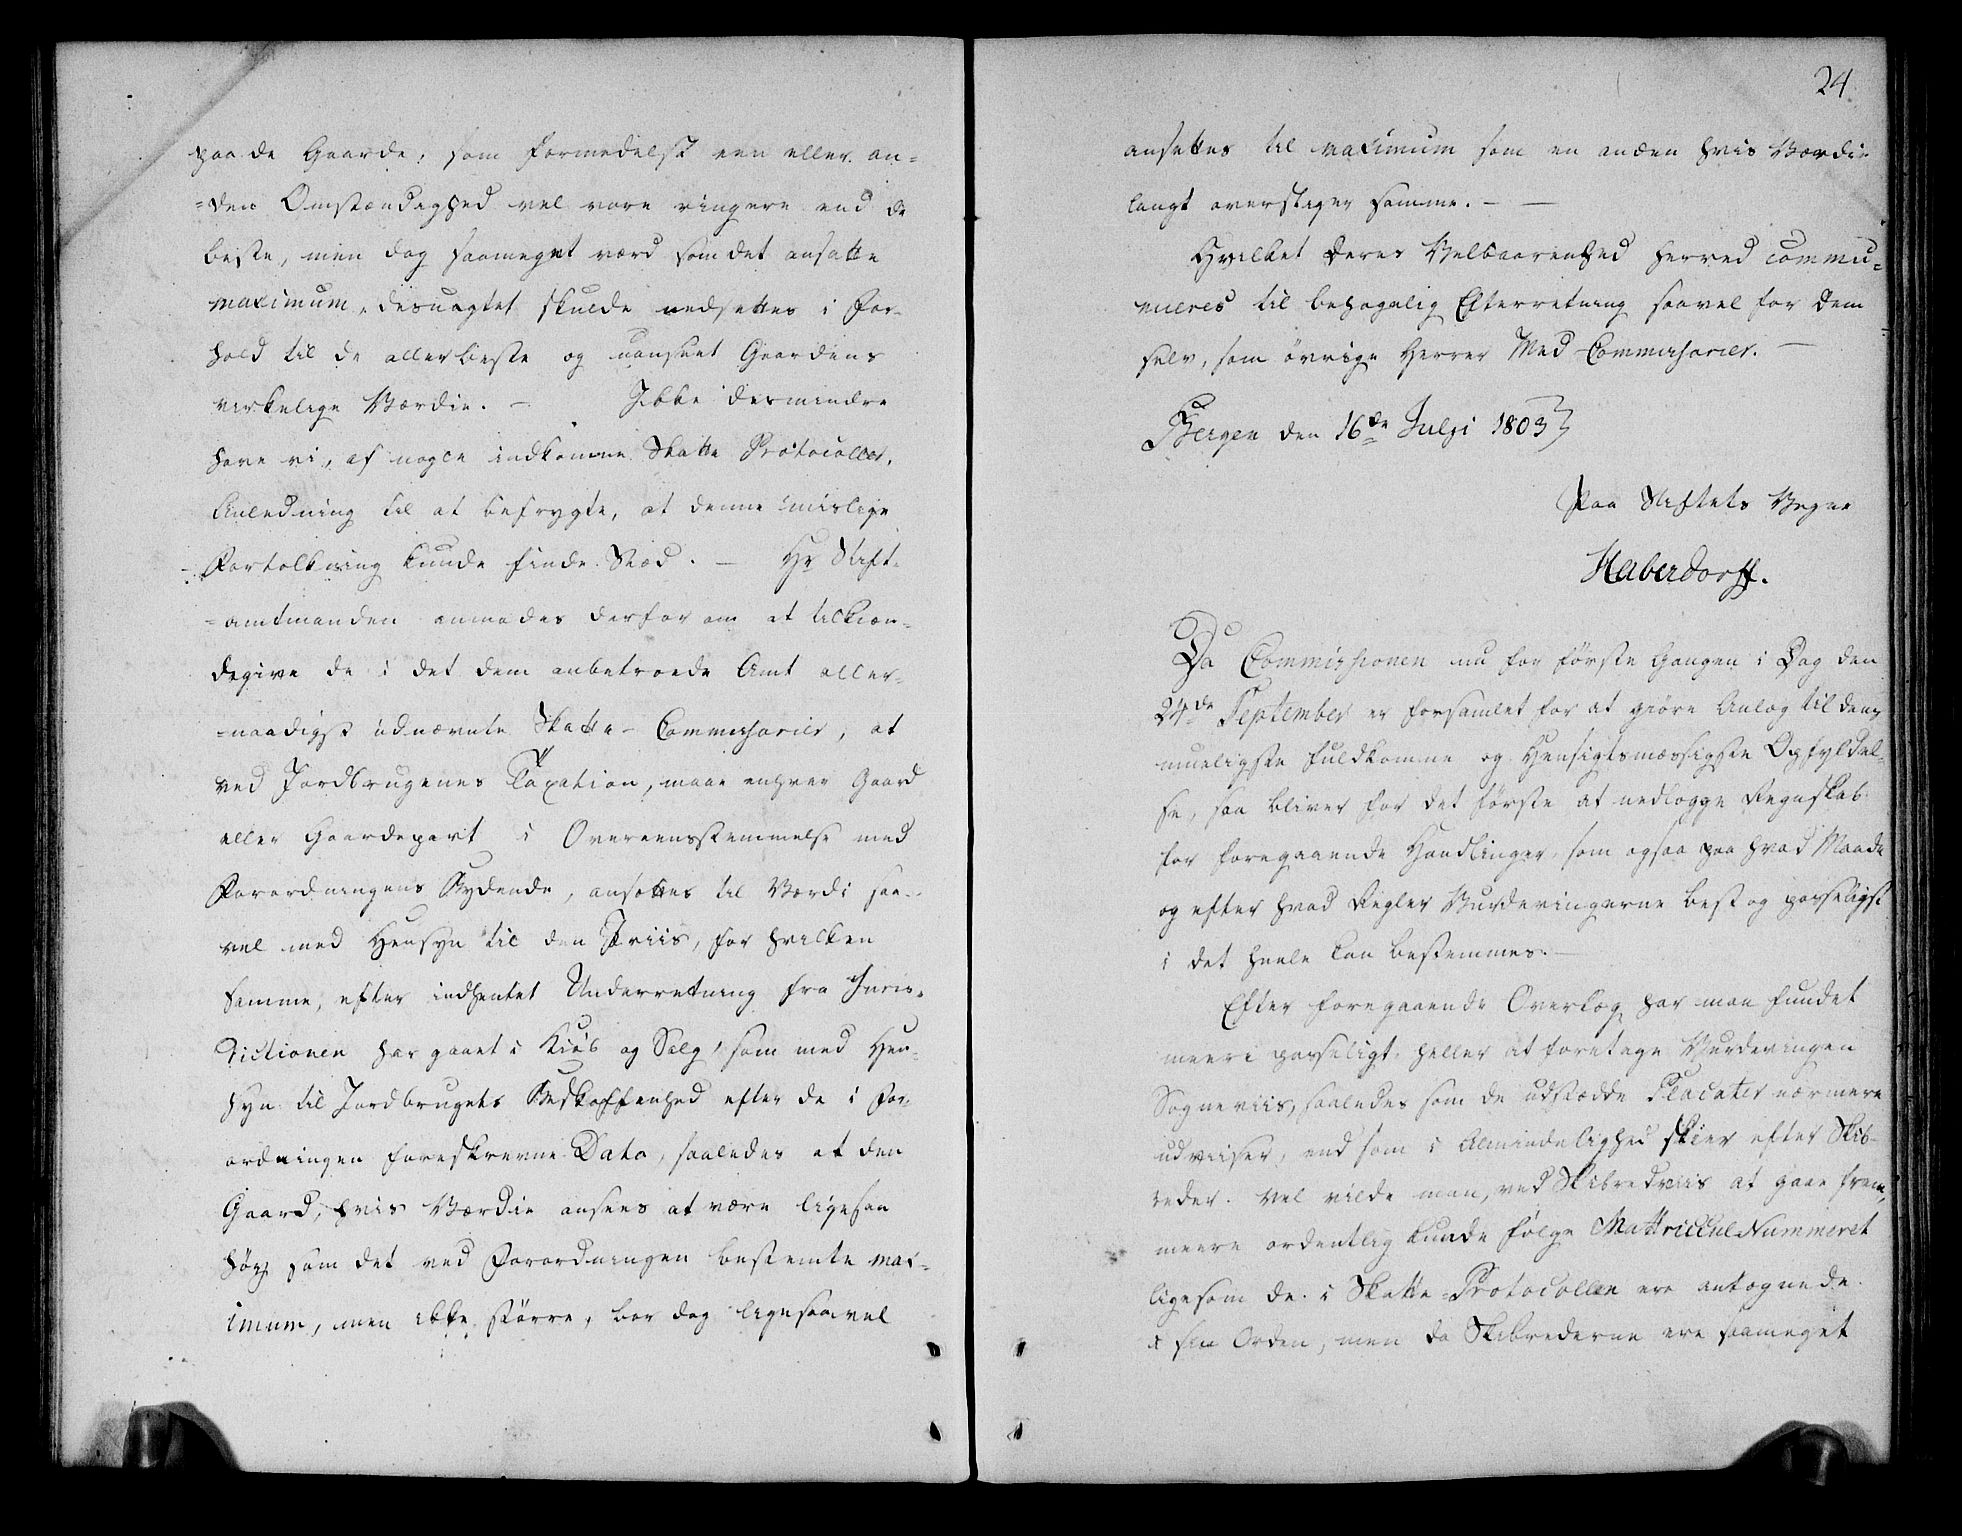 paa de Gaarde, som formedelst een eller an-
=den Omstændighed vel vare ringere end de
beste, men dog saameget værd som det ansatte
maximum, desuagtet skulde nedsettes i For-
hold til de allerbeste og uanseet Gaardens
virkelige Værdie. - Ikke desmindre
have vi, af nogle indkomne Skatte Protocoller,
Anledning til at befrygte, at denne mislige
Fortolkning kunde finde Stæd. - Hr Stift-
=amtmanden anmodes derfor om at tilkien-
degive de i det dem anbetroede Amt aller-
=naadigst udnævnte Skatte-Commissarier, at
ved Jordbrugenes Taxation, maae enhver Gaard
eller Gaardepart i Overeensstemmelse med
Forordningens Lydende, ansættes til Værdi saa-
vel med Hensyn til den Priis, for hvilken
samme, efter indhentet Underretning fra Juris-
dictionen har gaaet i Kiøb og Salg, som med Hen-
syn til Jordbrugets Beskaffenhed efter de i For-
ordningen foreskrevne Data, saaledes at den
Gaard, hvis Værdie ansees at være ligesaa
høy som det ved Forordningen bestemte max-
imum, men ikke større, bør dog ligesaavel
24
ansettes til maximum som en anden hvis Værdie
langt overstiger samme. - -
Hvilket Deres Velbaarenhed herved commu-
niceres til behagelig Efterretning saavel for Dem
selv, som øvrige Herrer Med-Commissarier. -
Bergen den 16de Julyi 1803
Paa Stiftets Vegne
Haberdorff.
Da Commissionen nu for første Gangen i Dag den
24de September er forsamlet for at giøre Anlæg til dens
mueligste fuldkomne og Hensigtsmæssigste Opfyldel-
se, saa bliver for det første at nedlegge Regnskab
for foregaaende Handlinger, som ogsaa paa hvad Maade
og efter hvad Regler Vurderingerne best og passeligst
i det heele kan bestemmes. -
Efter foregaaende Overlæg har man fundet
meere passeligt heller at foretage Vurderingen
Sogneviis, saaledes som de udstædde Placater nærmere
udviiser, end som i Almindelighed skier efter Skib-
reder. Vel vilde man, ved Skibredviis at gaae frem,
meere ordentlig kunde følge Mattricul Nummeret
ligesom de i Skatte-Protocollen ere antegnede
i sin Orden, men da Skibrederne ere saameget